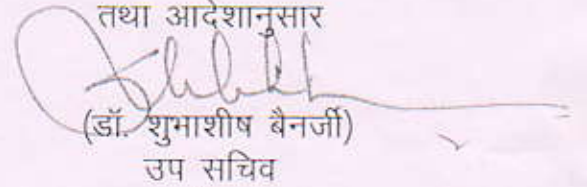 तथा आदेशानुसार
(डॉ. शुभाशीष बैनर्जी)
उप सचिव